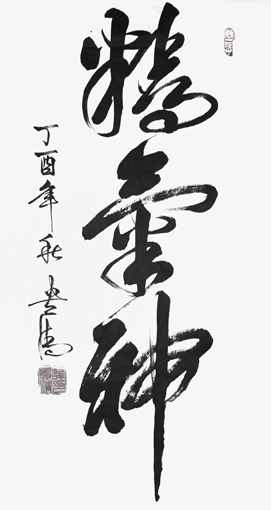 精氣神
丁酉年秋